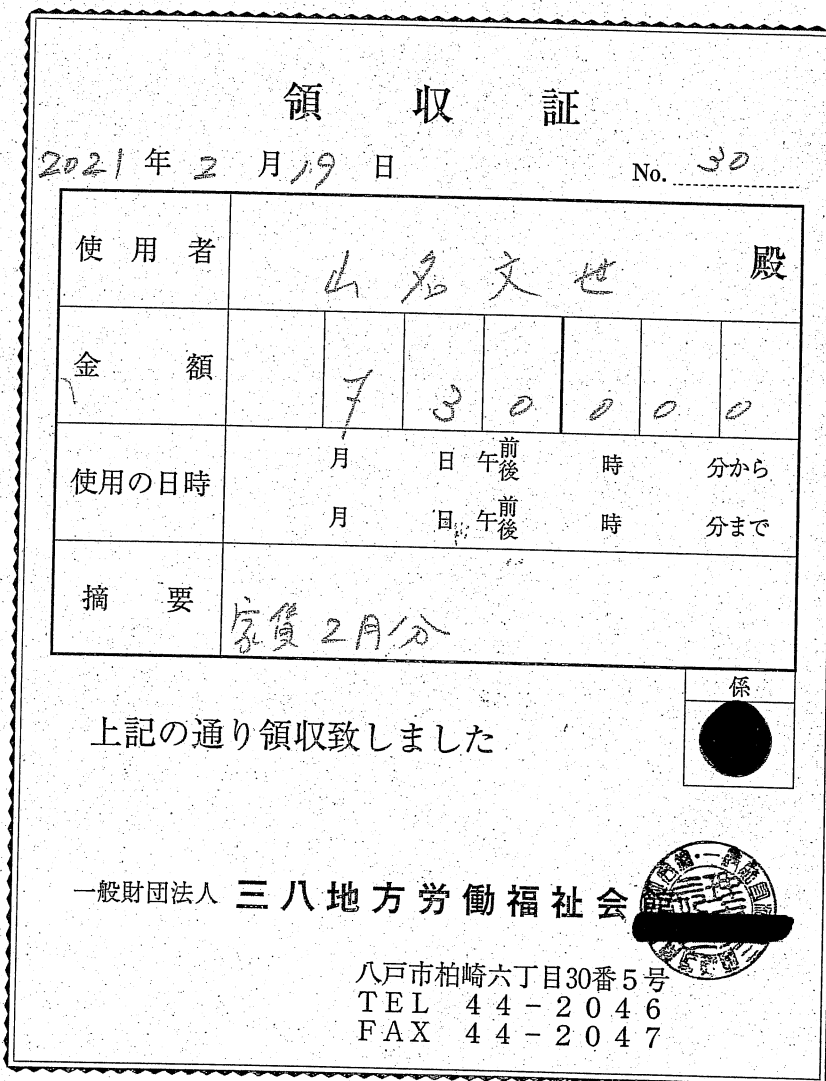 領収証
2021年2月19日 No. 30
使用者 山名文世 殿
金額 7 3 0 0 0 0
使用の日時 月 日 午前後 時 分から
月 日 午前後 時 分まで
摘要 家賃2月分
係
上記の通り領収致しました
一般財団法人 三八地方労働福祉会館
八戸市柏崎六丁目30番5号
TEL 44-2046
FAX 44-2047